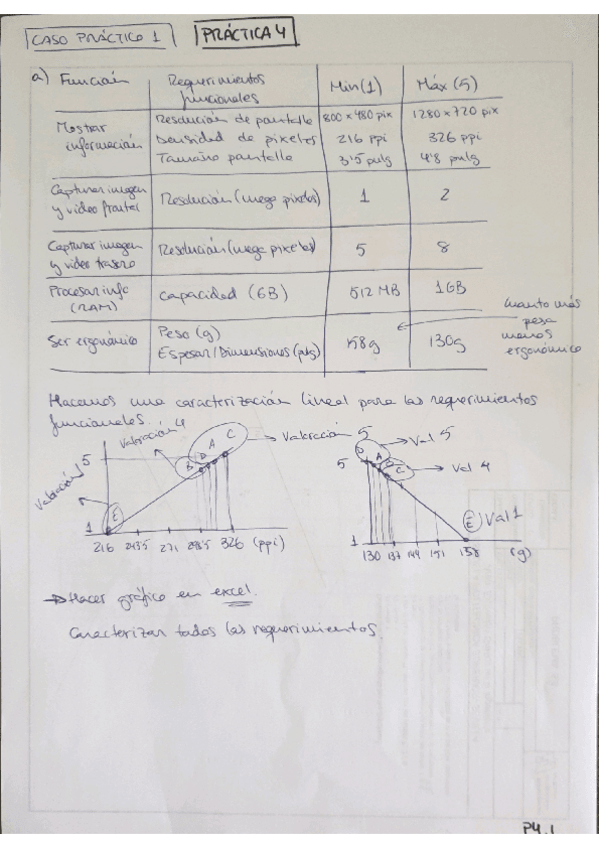 CASO PRÁCTICO 1 PRÁCTICA 4
a) Función Requerimientos funcionales Min (1) Máx (5)
Mostrar información
Resolución de pantalla 800 x 480 pix 1280 x 720 pix
Densidad de pixeles 216 ppi 326 ppi
Tamaño pantalla 3'5 pulg 4'8 pulg
Capturar imagen y video frontal Resolución (mega pixeles) 1 2
Capturar imagen y video trasero Resolución (mega pixeles) 5 8
Procesar info (RAM) Capacidad (GB) 512 MB 1GB
Ser ergonómico
Peso (g) 158g 130g
Espesor/Dimensiones (pulg)
Cuanto más
pesa
menos
ergonómico
Hacemos una caracterización lineal para los requerimientos
funcionales.
Valoración 4
Valoración 5
Valoración 1
5
B D A C
E
1
216 243'5 271 298'5 326 (ppi)
Val 5
Val 4
5
D A B C
E Val 1
1
130 137 144 151 158 (g)
→ Hacer gráfico en excel.
Caracterizar todos los requerimientos.
P4.1